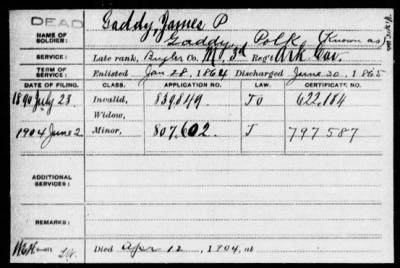 DEAD
Gaddy, James P
NAME OF SOLDIER:
Gaddy, Polk (Known as)
SERVICE:
Late rank, Bugler Co. M, 3d Reg't Ark Cav.
TERM OF SERVICE:
Enlisted Jan 28, 1864 Discharged June 30, 1865
DATE OF FILING. CLASS. APPLICATION NO. LAW. CERTIFICATE NO.
1890 July 23 Invalid, 839849 Jo 622,184
Widow,
1904 June 2 Minor, 807,602 J 797587
ADDITIONAL SERVICES:
REMARKS:
Died Apr 12, 1904, at